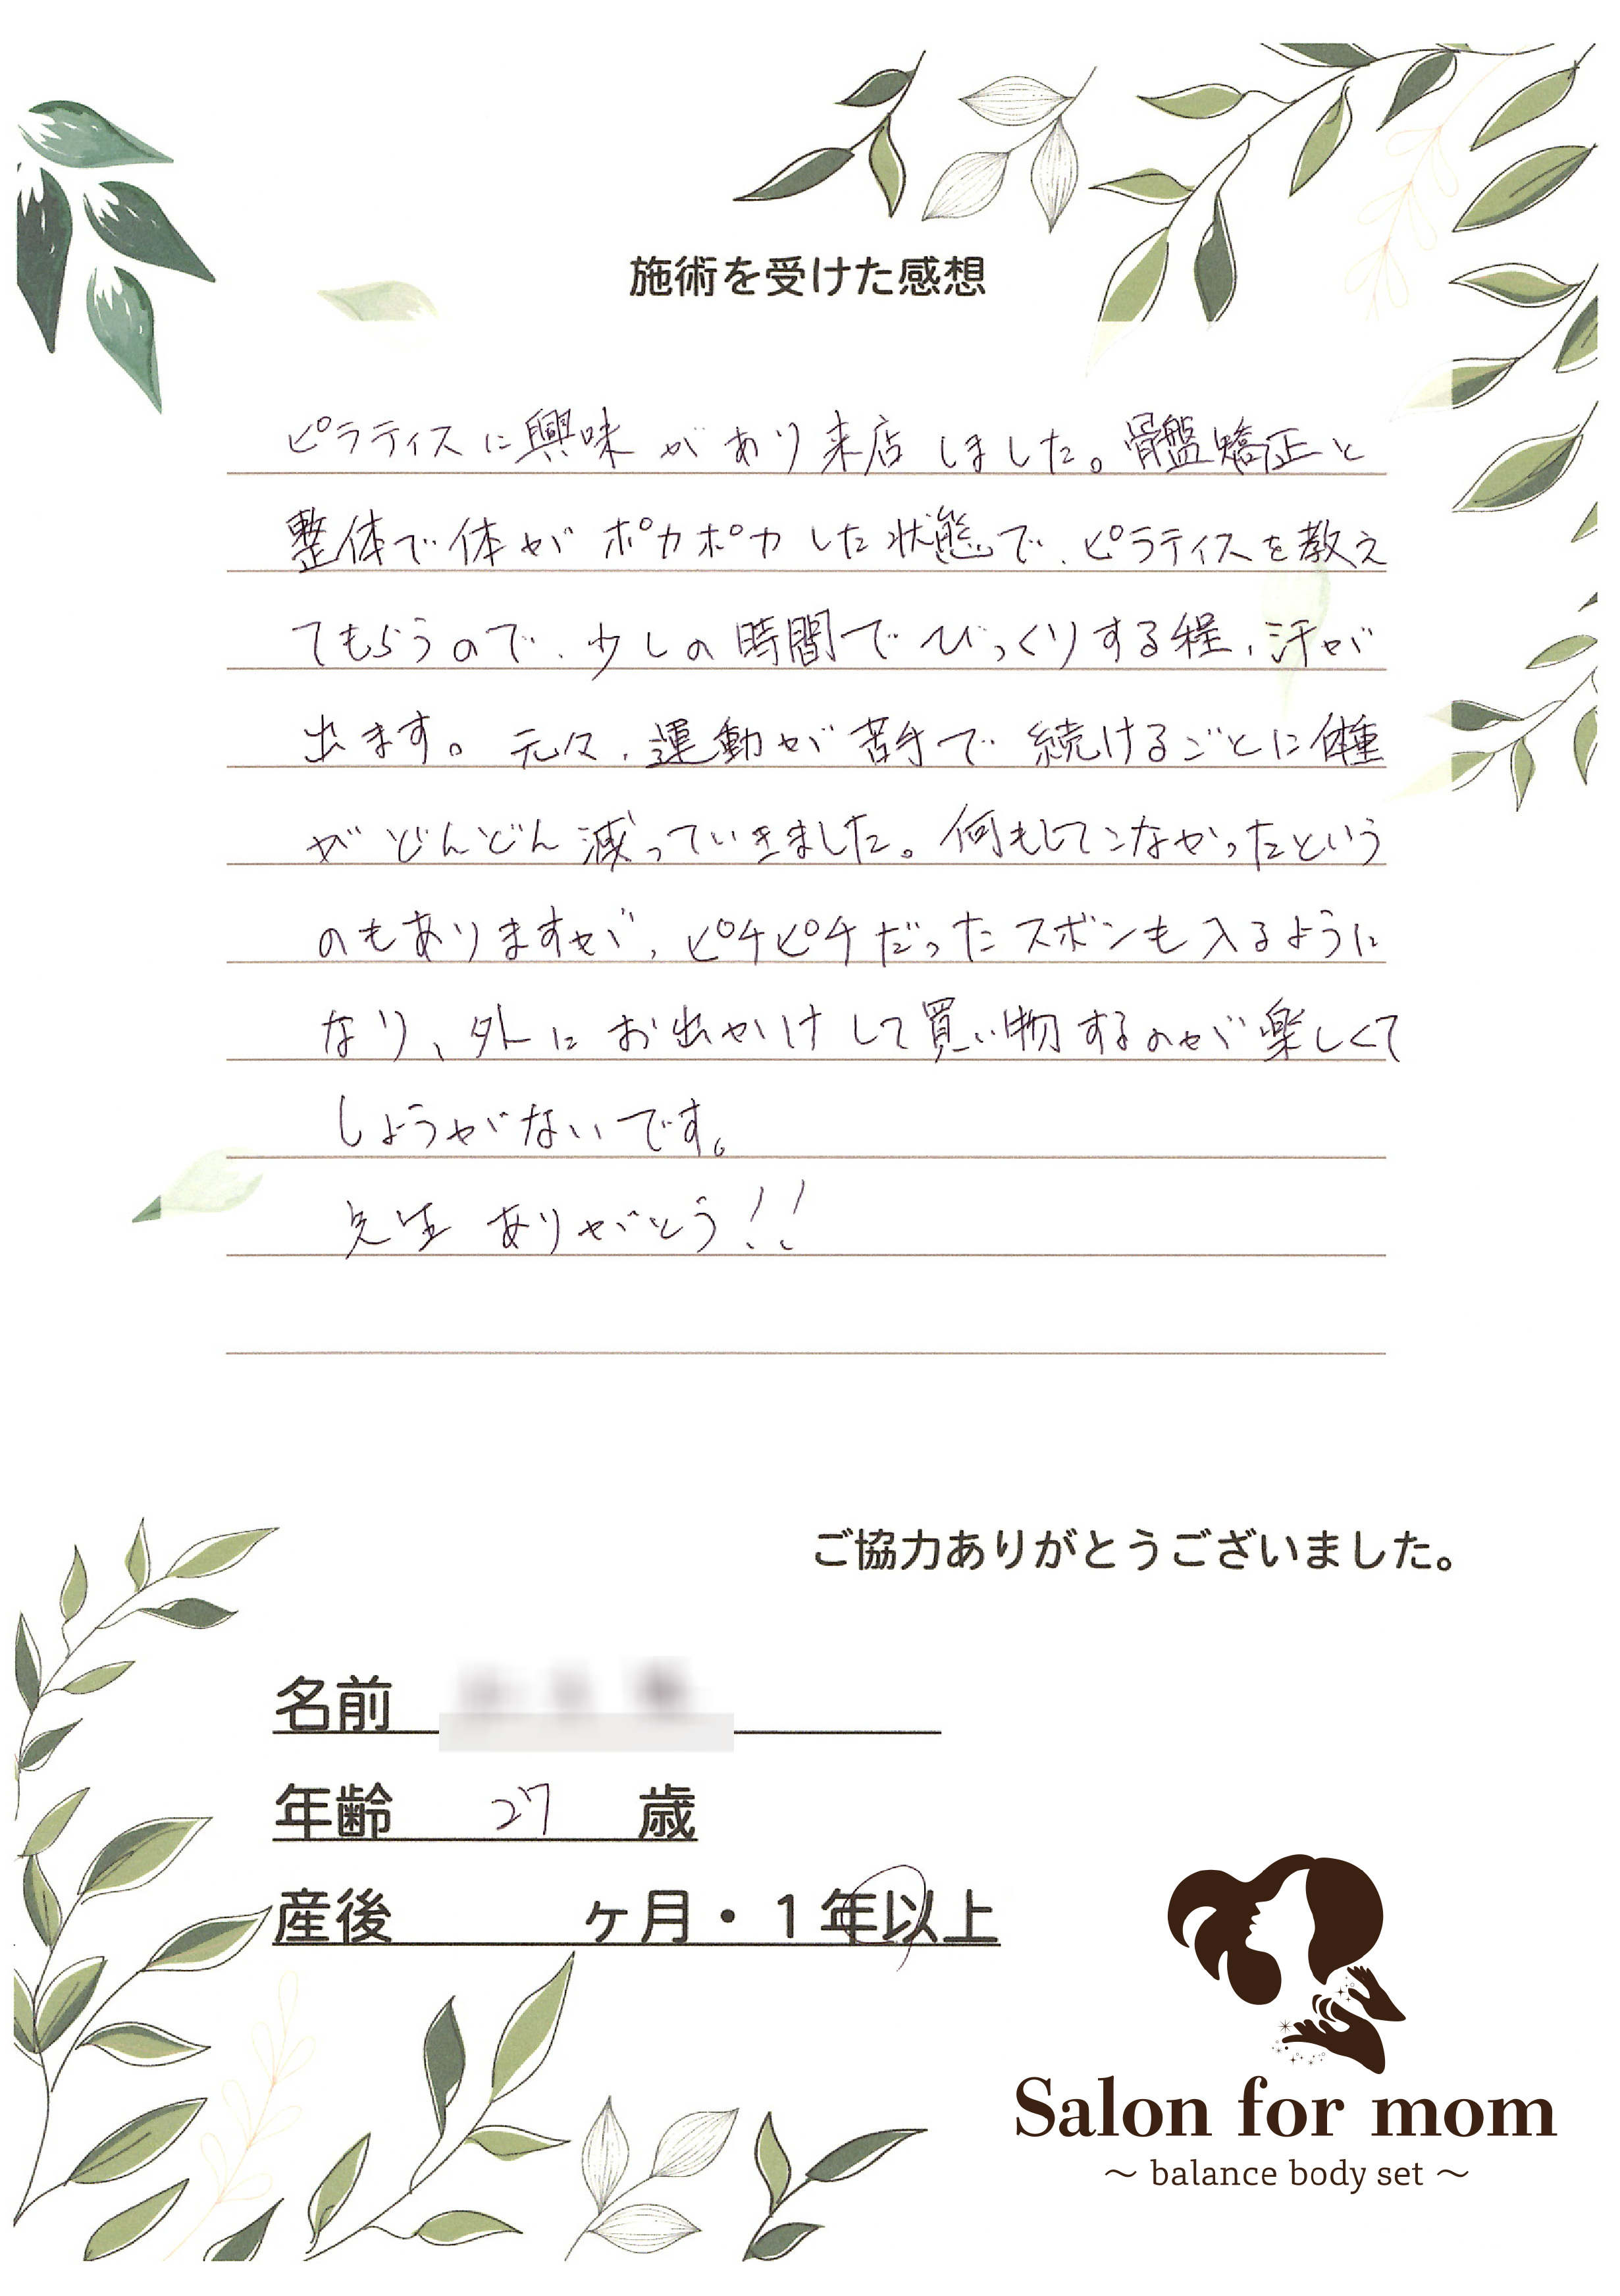 施術を受けた感想
ピラティスに興味があり来店しました。骨盤矯正と
整体で体がポカポカした状態で、ピラティスを教え
てもらうので、少しの時間でびっくりする程、汗が
出ます。元々、運動が苦手で続けるごとに体重
がどんどん減っていきました。何もしてこなかったという
のもありますが、ピチピチだったズボンも入るように
なり、外にお出かけして買い物するのが楽しくて
しょうがないです。
先生ありがとう!!
ご協力ありがとうございました。
名前
年齢 27 歳
産後 ヶ月・1年以上
Salon for mom
～ balance body set ～